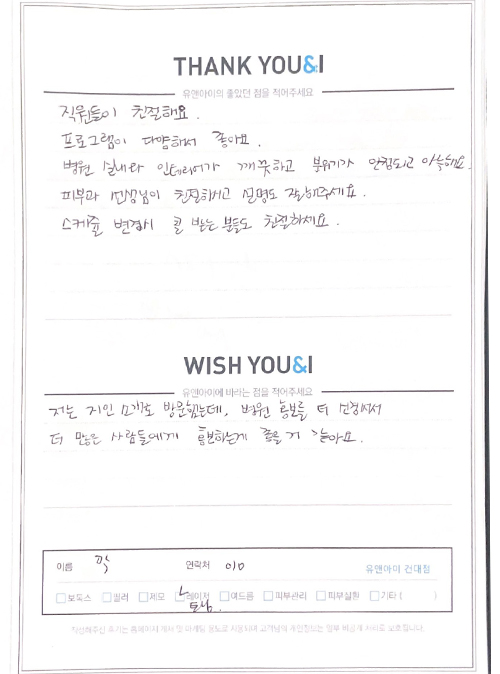 THANK YOU&I
유앤아이의 좋았던 점을 적어주세요
직원들이 친절해요.
프로그램이 다양해서 좋아요.
병원 실내와 인테리어가 깨끗하고 분위기가 안정되고 아늑해요.
피부과 선생님이 친절하시고 설명도 잘해주세요.
스케쥴 변경시 콜 받는 분들도 친절하세요.
WISH YOU&I
유앤아이에 바라는 점을 적어주세요
저는 지인 소개로 방문했는데, 병원 홍보를 더
더 많은 사람들에게 홍보하는게 좋을 거 같아요.
이름 연락처 010 유앤아이 건대점
보톡스 필러 제모 레이저 여드름 피부관리 피부질환 기타 ( )
토닝
작성해주신 후기는 홈페이지 게시 및 마케팅 용도로 사용되며 고객님의 개인정보는 일부 비공개 처리로 보호됩니다.